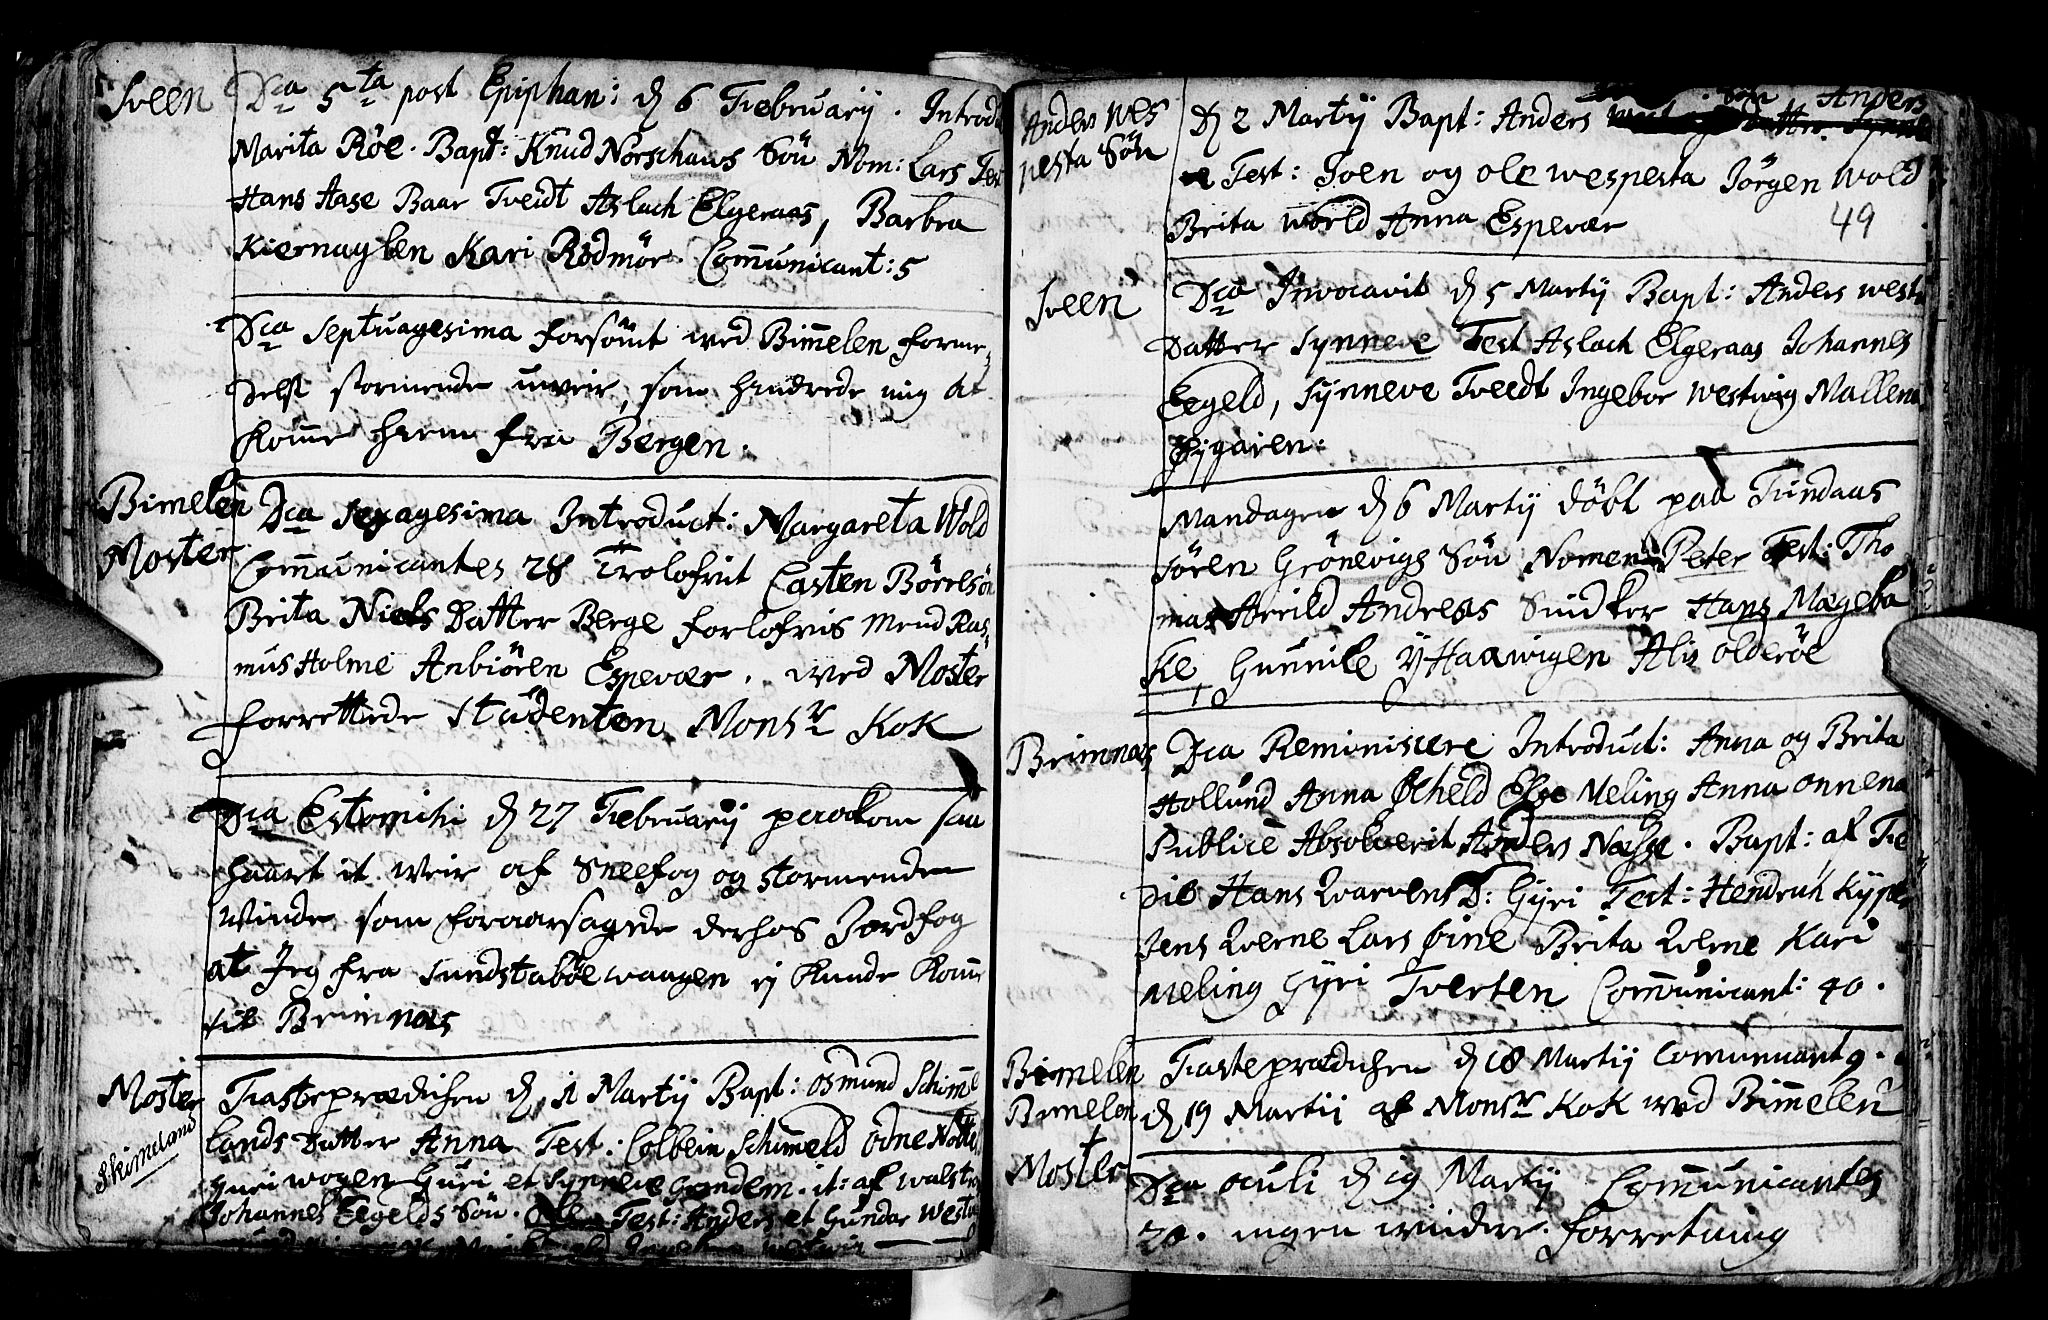 Sveen
Dca 5ta post Epiphan: d 6 Februarij. Introd
Marita Röe. Bapt: Knud Norschaws Sön Nom: Lars Test
Hans Aase Baar Tveidt Aslach Elgeraas, Barbra
Kiernaglen Kari Rödmör. Communicant: 5
Dca Septuagesima forsömt wed Bimmelen forme-
delst stormende uweir, som hindrede mig at
komme hiem fra Bergen.
Bimelen
Moster
Dca Sexagesima Introduct: Margareta Wold
Communicantes 28 Trolofvit Casten Börrelsön
Brita Niels Datter Berge forlofvis Mend Ras-
mus Holme Anbiören Espevær. wed Moster
forrettede Studenten Monsr Kok
Dca Estomihi d 27 Februarij paakom saa
haart it weir af Sneefog og stormende
winde som foraarsagede derhos Jordfog
at Jeg fra Sundstaböe waagen ej kunde komme
til Brimnæs
Moster
Skimeland
Fasteprædichen d. 1 Martij Bapt: Osmund Schimme
lands Datter Anna Test: Colbein Schimeld Odne Notte
Guri wogen Guri et Synneve Grindem. it: af
Johannes Eegelds Sön. Ole Test: Anders et Gundar
Anders Wes
pesta Sön
D 2 Martij Bapt: Anders Sön Anders
Test: Joen og Ole wespesta Jörgen Wold
Brita World Anna Espevær
49
Sveen
Dca Invocavit d 5 Martij Bapt: Anders westv
Datter Synneve Test Aslach Elgeraas Johannes
Eegeld, Synneve Tveedt Ingebor Westvig Mallena
Øygaren:
Mandagen d 6 Martij döbt paa Findaas
Sören Grönevigs Sön Nomen: Peter Test: Tho
mas Arrild Andreas Snidker Hans Mageba
ke, Gunnile Y Haawigen Alis olderöe
Brimnæs
Dca Reminiscere Introduct: Anna og Brita
Hollund Anna Økeld Else Meling Anna Onnena
Publice Absolverit Anders Næsse. Bapt: af Fie
Hans Qvarvens D: Gyri Test: Hendrich Kyp
Jens Qverne Lars Øine Brita Qverne Kari
Meling Gyri Tverten Communicant: 40.
Bimelen
Bimelen
Fasteprædichen d 18 Martij Communicant 9.
d 19 Martij af Monsr Kok wed Bimmelen
Moster
Dca Oculi d 19 Martij Communicantes
30. ingen widere forretning